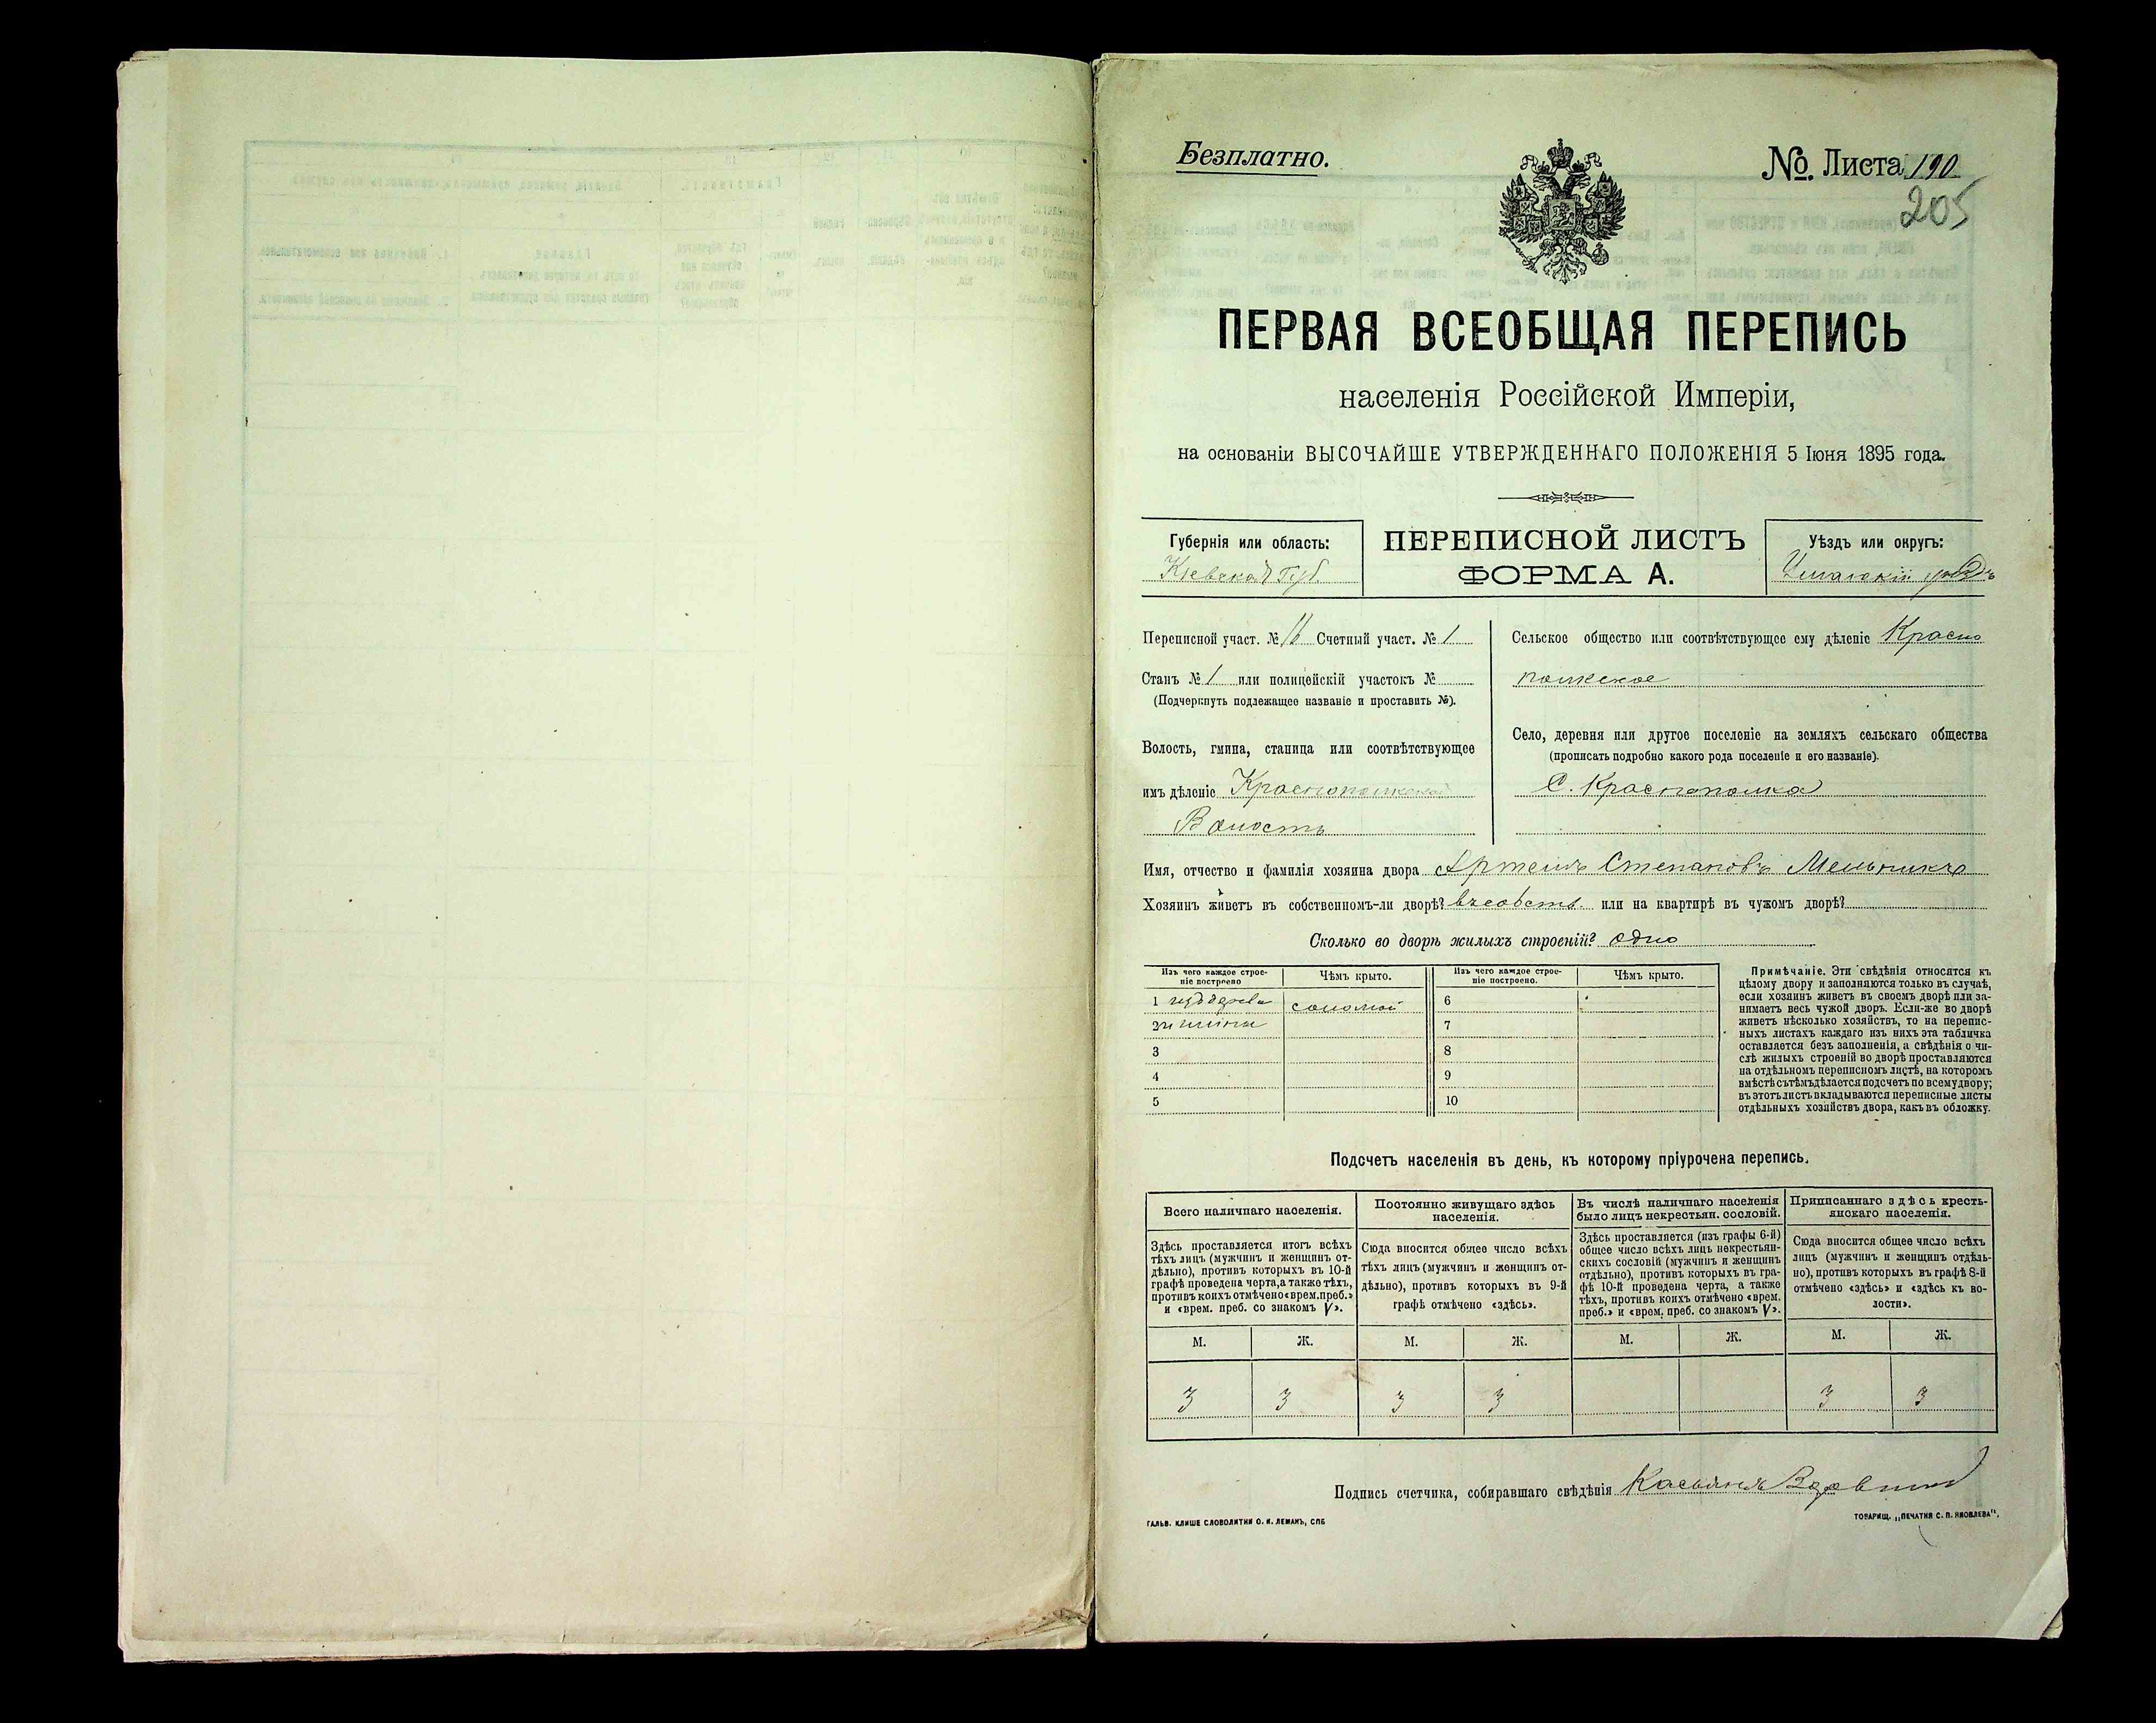 Безплатно.
№ Листа 190
205
ПЕРВАЯ ВСЕОБЩАЯ ПЕРЕПИСЬ
населенія Россійской Имперіи,
на основаніи ВЫСОЧАЙШЕ УТВЕРЖДЕННАГО ПОЛОЖЕНІЯ 5 Іюня 1895 года.
Губернія или область:
Кіевская Губ.
ПЕРЕПИСНОЙ ЛИСТЪ
ФОРМА А.
Уѣздъ или округъ:
Уманскій уѣздъ
Переписной участ. № 16 Счетный участ. № 1
Станъ № 1 или полицейскій участокъ №
(Подчеркнуть подлежащее названіе и проставить №).
Волость, гмина, станица или соотвѣтствующее
имъ дѣленіе Краснополкская
Волость
Сельское общество или соотвѣтствующее ему дѣленіе Красно
полкское
Село, деревня или другое поселеніе на земляхъ сельскаго общества
(прописать подробно какого рода поселеніе и его названіе).
С. Краснополка
Имя, отчество и фамилія хозяина двора Артемъ Степановъ Мельникъ
Хозяинъ живетъ въ собственномъ-ли дворѣ? въ собств. или на квартирѣ въ чужомъ дворѣ?
Сколько во дворѣ жилыхъ строеній? одно
Изъ чего каждое строе-
ніе построено
Чѣмъ крыто.
Изъ чего каждое строе-
ніе построено.
Чѣмъ крыто.
1 изъ дерева соломой 6
2 и глины 7
3 8
4 9
5 10
Примѣчаніе. Эти свѣдѣнія относятся къ
цѣлому двору и заполняются только въ случаѣ,
если хозяинъ живетъ въ своемъ дворѣ или за-
нимаетъ весь чужой дворъ. Если-же во дворѣ
живетъ нѣсколько хозяйствъ, то на перепис-
ныхъ листахъ каждаго изъ нихъ эта табличка
оставляется безъ заполненія, а свѣдѣнія о чи-
слѣ жилыхъ строеній во дворѣ проставляются
на отдѣльномъ переписномъ листѣ, на которомъ
вмѣстѣ съ тѣмъ дѣлается подсчетъ по всему двору;
въ этотъ листъ вкладываются переписные листы
отдѣльныхъ хозяйствъ двора, какъ въ обложку.
Подсчетъ населенія въ день, къ которому пріурочена перепись.
Всего наличнаго населенія.
Здѣсь проставляется итогъ всѣхъ
тѣхъ лицъ (мужчинъ и женщинъ от-
дѣльно), противъ которыхъ въ 10-й
графѣ проведена черта, а также тѣхъ,
противъ коихъ отмѣчено «врем. преб.»
и «врем. преб. со знакомъ V».
Постоянно живущаго здѣсь
населенія.
Сюда вносится общее число всѣхъ
тѣхъ лицъ (мужчинъ и женщинъ от-
дѣльно), противъ которыхъ въ 9-й
графѣ отмѣчено «здѣсь».
Въ числѣ наличнаго населенія
было лицъ некрестьян. сословій.
Здѣсь проставляется (изъ графы 6-й)
общее число всѣхъ лицъ некрестьян-
скихъ сословій (мужчинъ и женщинъ
отдѣльно), противъ которыхъ въ гра-
фѣ 10-й проведена черта, а также
тѣхъ, противъ коихъ отмѣчено «врем.
преб.» и «врем. преб. со знакомъ V».
Приписаннаго здѣсь кресть-
янскаго населенія.
Сюда вносится общее число всѣхъ
лицъ (мужчинъ и женщинъ отдѣль-
но), противъ которыхъ въ графѣ 8-й
отмѣчено «здѣсь» и «здѣсь къ во-
лости».
М. Ж. М. Ж. М. Ж. М. Ж.
3 3 3 3 3 3
Подпись счетчика, собиравшаго свѣдѣнія Касьянъ
ГАЛЬВ. КЛИШЕ СЛОВОЛИТНИ О. И. ЛЕМАНЪ, СПБ
ТОВАРИЩ. „ПЕЧАТНЯ С. П. ЯКОВЛЕВА".